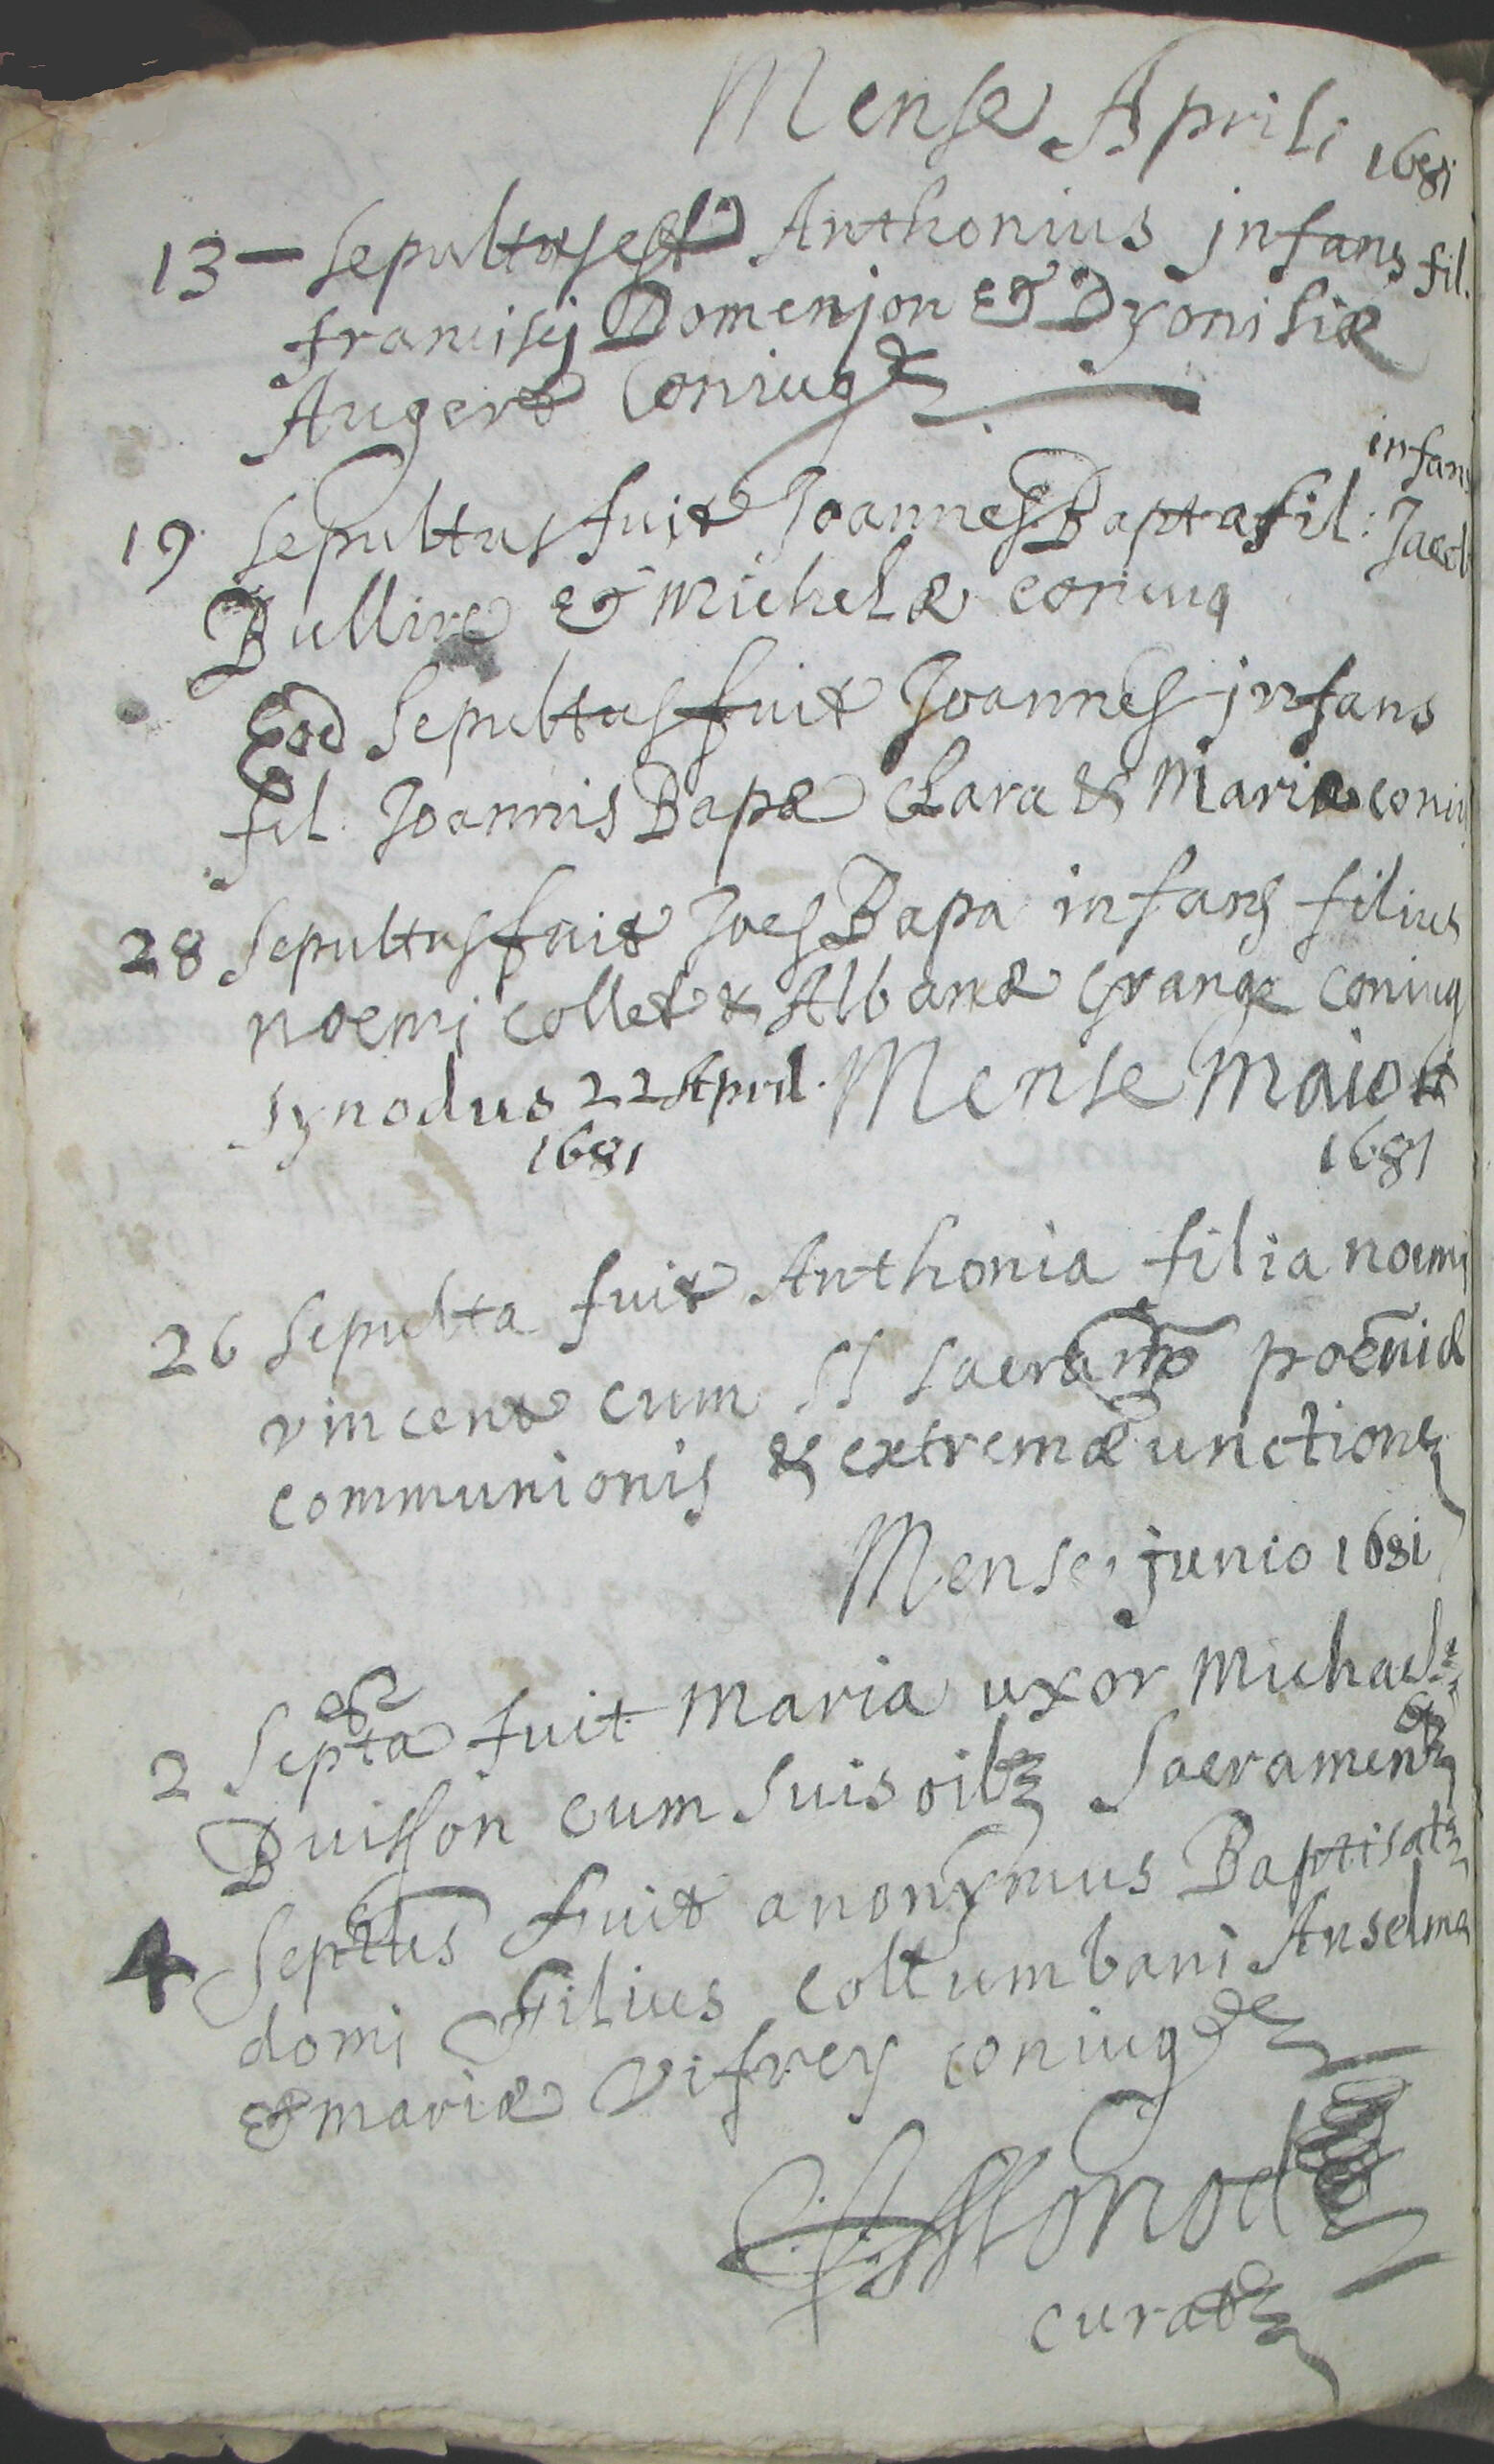 Mense Aprili 1681
13 – sepultus est Anthonius infans fil.
francisci Domenjon et Dyonisiæ
Auger Coniug
infans
19 sepultus fuit Joannes Bapta fil: Jacob
Bullire et Michelæ coniug
Eod sepultus fuit Joannes infans
fil. Joannis Bapæ Clara & Mariæ coniu
28 sepultus fuit Joes Bapa infans filius
noemi collet & Albanæ Grange coniug
synodus 22 April. Mense Maio
1681 1681
26 sepulta fuit Anthonia filia noemi
vincent cum SS sacramto poenid
communionis & extremæ unctionis
Mense junio 1681
2 Septa fuit Maria uxor Michael
Buisson cum suis oib Sacrament
4 Septus fuit anonymus Baptisat
domi Filius collumbani Anselme
et mariæ Vifrey coniug
Monod
curat